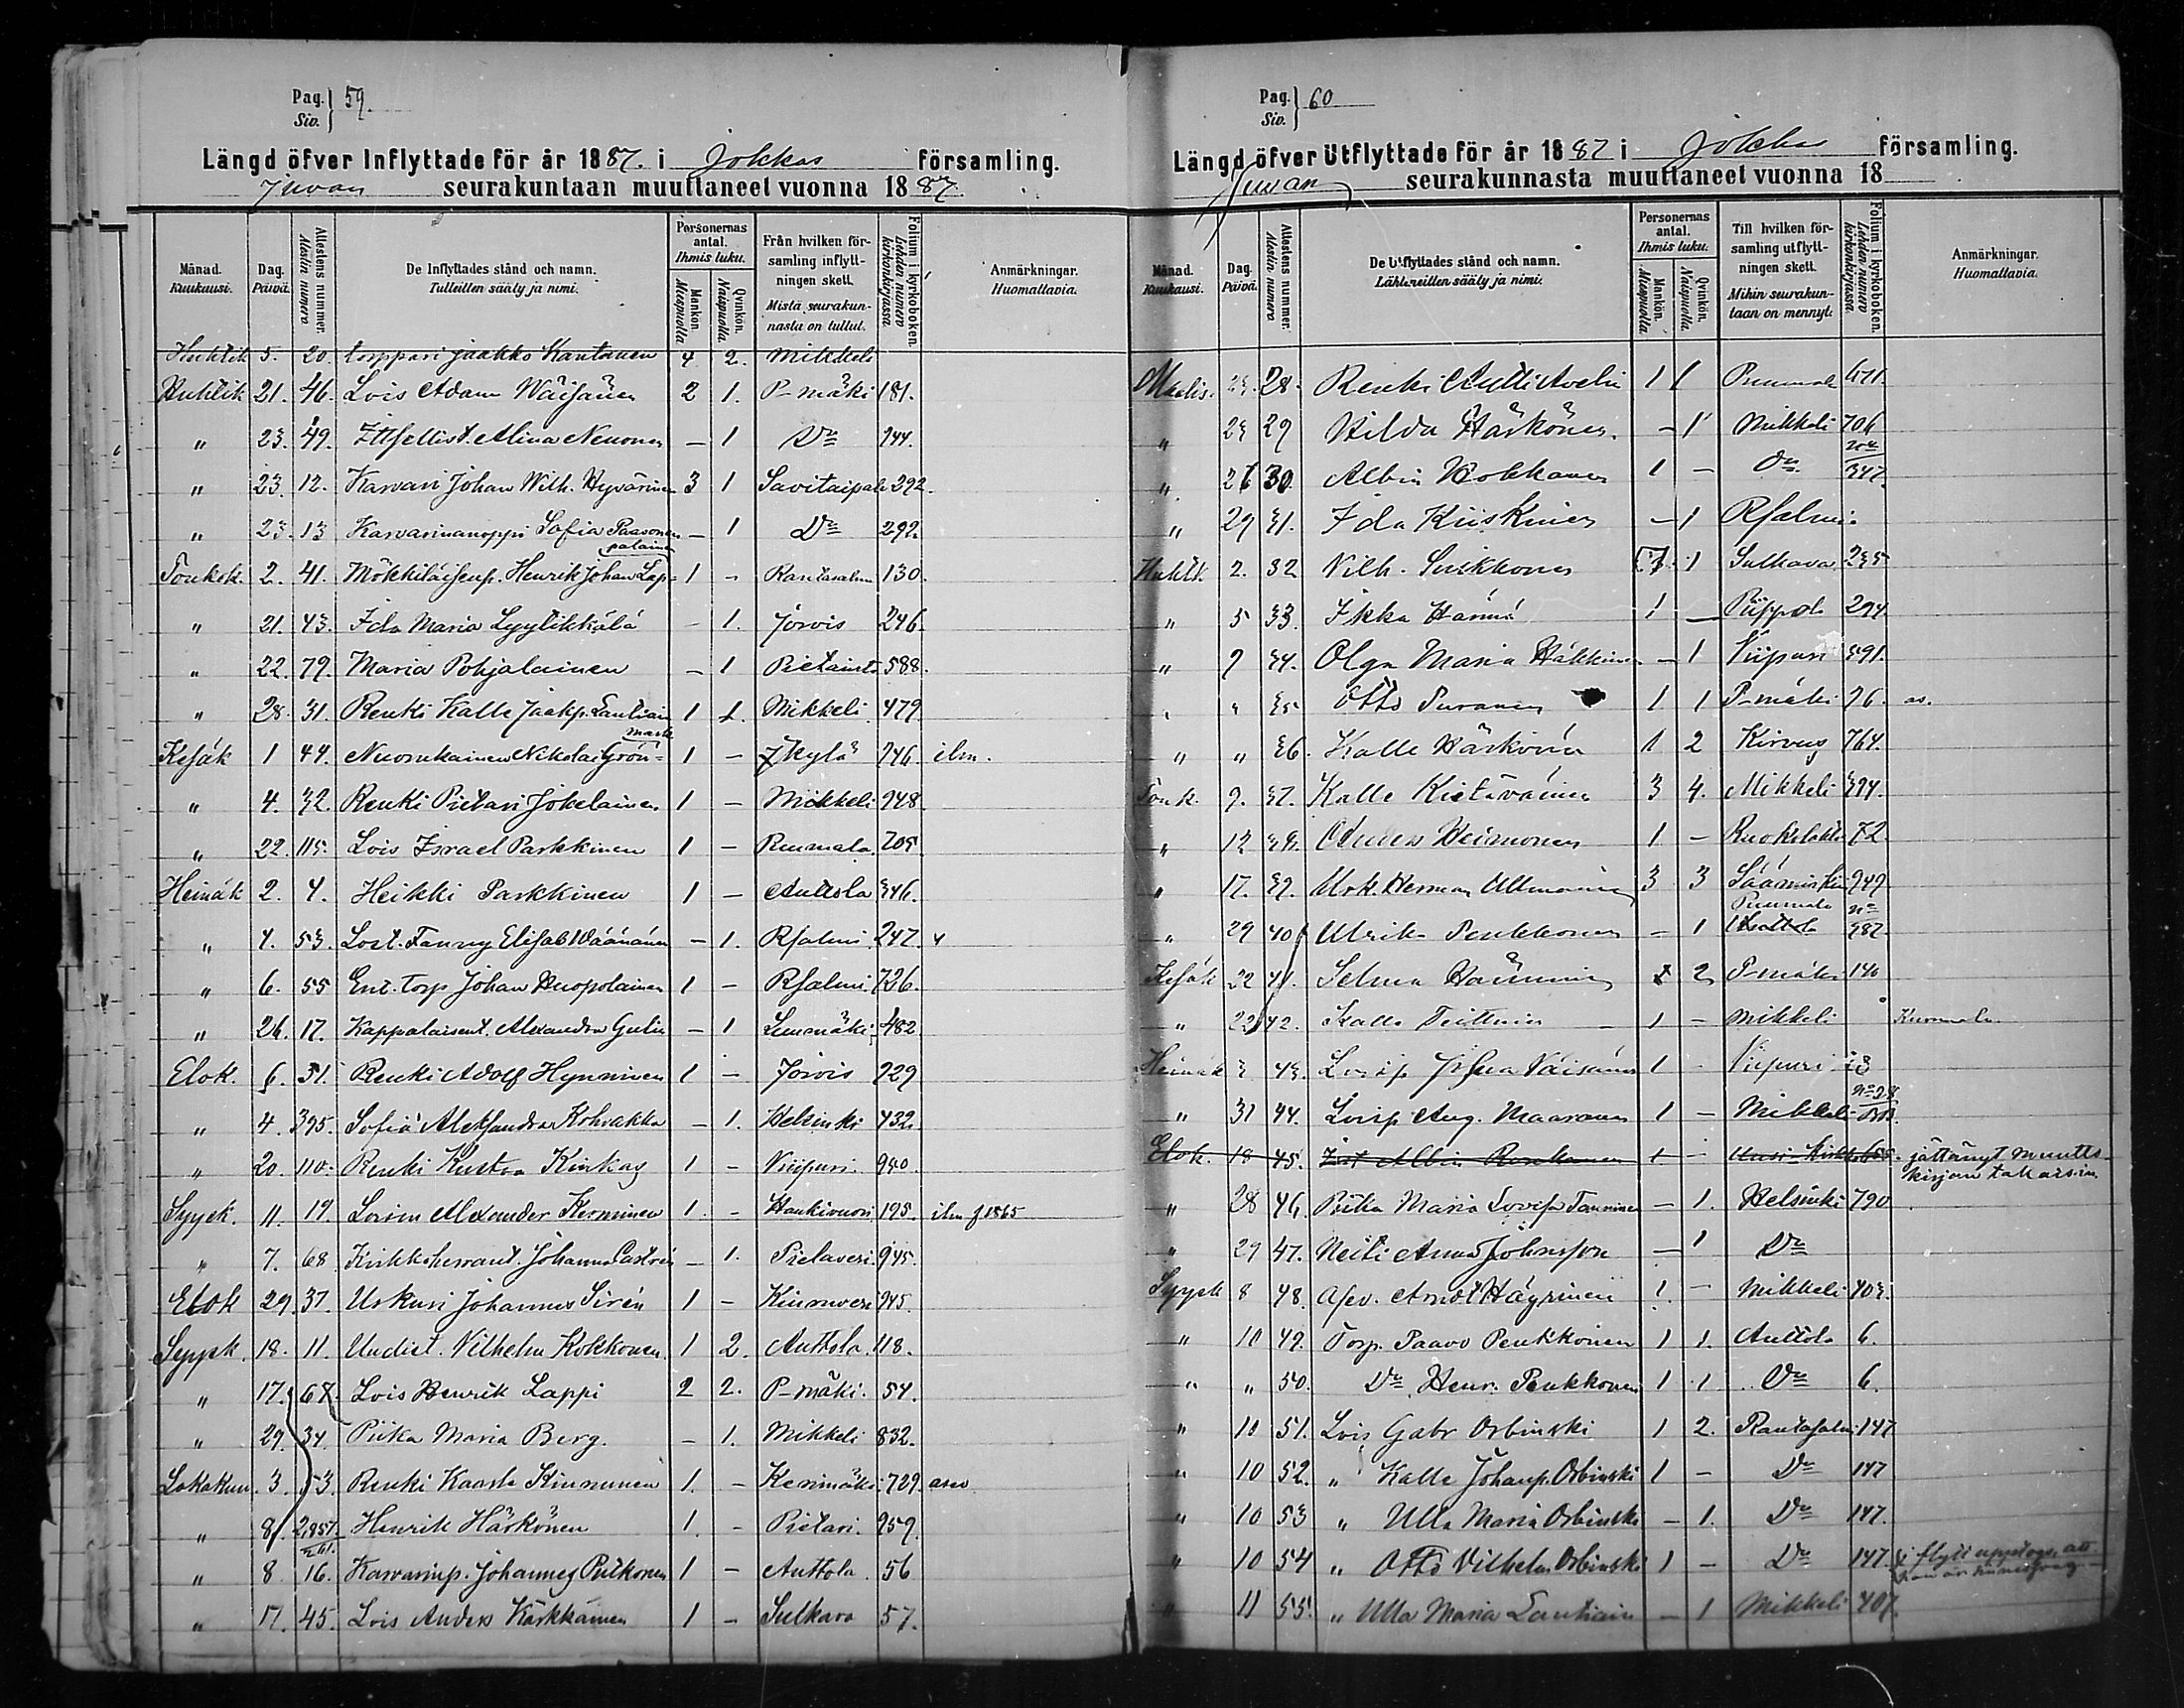 Pag. Siv. 59.
Längd öfver Inflyttade för år 1887. i Jokkas församling.
Juvan seurakuntaan muuttaneet vuonna 1887
Månad. Kuukausi. Dag. Päivä. Attestens nummer. Atestin numero De Inflyttades stånd och namn. Tulleitten sääty ja nimi. Personernas antal. Ihmis luku. Mankön. Miespuolia. Qvinkön. Naispuolia. Från hvilken församling inflyttningen skett. Mistä seurakunnasta on tullut. Folium i kyrkoboken. Lehden numero kirkonkirjassa. Anmärkningar. Huomattavia.
Huhtik 5. 20. torppari Jaakko Kautanen 4 2. Mikkeli
Huhtik 21. 46. Lois Adam Wäisänen 2 1. P-mäki 181.
" 23. 49. Itsellist. Alina Neuonen — 1 Do 244.
" 23. 12. Karvari Johan Wilh. Hyvärinen 3 1 Savitaipale 292.
" 23. 13 Karvarinanoppi Sofia Paasonen — 1 Do 292.
Toukok. 2. 41. Mökkiläisenp. Henrik Johan Lappalainen 1 - Rantasalmi 130.
" 21. 43. Ida Maria Lyytikkälä - 1. Jorois 246.
" 22. 79. Maria Pohjalainen — 1 Pielaimta 588.
" 28. 31. Renki Kalle Jaakp. Lautiain 1 1. Mikkeli 479
Kesäk 1 44. Nuorukainen Nikolai Grönmark 1 — Jkylä 746. ilm.
" 4. 32. Renki Pietari Jokelainen 1 — Mikkeli 948.
" 22. 115. Lois Israel Parkkinen 1 — Puumala 705.
Heinäk 2. 4. Heikki Parkkinen 1 — Anttola 346.
" 4. 53. Lost. Fanny Elisab Wäänänen — 1. Rsalmi 247.
" 6. 55 Ent. torp Johan Huopolainen 1 — Rsalmi. 726.
" 26. 17. Kappalaisent. Alexandra Gulin — 1 Lemmäki 482
Elok. 6. 51. Renki Adolf Hynninen 1 — Jorois 929
" 4. 395. Sofia Aleksandra Kohvakka — 1. Helsinki 432.
" 20. 110. Renki Kustaa Kinkas 1 - Viipuri. 980.
Syysk. 11. 19. Loisen Alexander Kerminen 1. - Haukivuori 195. ilm f 1865
" 7. 68 Kirkkoherrant. Johanna Castrén — 1. Pielavesi. 945.
Elok 29 37. Urkuri Johannes Sirén 1 - Kinnwesi 945.
Syysk. 18. 11. Uudist. Vilhelm Kokkonen. 1 2. Anttola. 118.
" 17. 67. Lois Henrik Lappi 2 2. P-mäki. 54.
" 29. 34. Piika Maria Berg. - 1. Mikkeli 832.
Lokakuu. 3. 53. Renki Kaarle Kinnunen 1. - Kerimäki 729. asev
" 8. 2,851. Henrik Härkönen 1. - Pietari. 959.
" 8 16. Karvarinp. Johannes Pulkonen 1 — Anttola. 56
" 17. 45. Lois Anders Kärkkäinen 1 - Sulkava 57.
Pag. Siv. 60
Längd öfver Utflyttade för år 1887 i Jokkas församling.
Juvan seurakunnasta muuttaneet vuonna 18
Månad. Kuukausi. Dag. Päivä. Attestens nummer. Atestin numero De Utflyttades stånd och namn. Lähteneitten sääty ja nimi. Personernas antal. Ihmis luku. Mankön. Miespuolia. Qvinkön. Naispuolia. Till hvilken församling utflyttningen skett. Mihin seurakuntaan on mennyt. Folium i kyrkoboken. Lehden numero kirkonkirjassa. Anmärkningar. Huomattavia.
Maalis. 23. 28. Renki Antti Avelin 1 1 Puumala 411.
" 23 29 Hilda Härkönen. - 1 Mikkeli 706
" 26 30. Albin Hokkanen 1 — Do 347.
" 29 31. Ida Kiiskinen — 1 Rsalmi
Huhtk. 2. 32 Vilh. Suikkonen 1 Sulkava 235
" 5 33. Ikka Hänni 1 — Piippola 294
" 9 34. Olga Maria Häkkinen — 1 Viipuri 591.
" " 35 Otto Turanen 1 1 P-mäki 76. as.
" " 36. Kalle Härkönen 1 2 Kirvus 764.
Touk. 9. 37. Kalle Kietäväinen 3 4. Mikkeli 394.
" 12 38. Anders Heimonen 1 — Ruokolahti 72
" 17. 39. Urk. Herman Ullmanin 3 3 Sääminki 949
" 29 40 Ulrika Penkkonen - 1 Puumala 387
Kesäk 22 41. Selma Hänninen 2 P-mäki 140
" 22 42. Kalle Teittinen 1 — Mikkeli
Heinäk 3 43. Loisp Johan Väisänen 1 - Viipuri
" 31 44. Loisp Aug. Maaranen 1 — Mikkeli
Elok. 18 45. Albin 1 - Uusi-Kirkko jättänyt muutto-
kirjan takaisin.
" 28 46. Piika Maria Lovisa Tanninen — 1. Helsinki 790
" 29 47. Neiti Anna Johnsson — 1 Do
Syysk 8 48. Asev. Arndt Häyrinen 1. — Mikkeli 403.
" 10 49. Torp. Paavo Penkkonen 1 1. Anttola 6.
" " 50. Do Henr. Penkkonen 1 1 Do 6.
" 10 51. Lois Gabr Orbinski 1 2. Rantasalmi 147
" 10 52. " Kalle Johanp. Orbinski 1 — Do 147
" 10 53 " Ulla Maria Orbinski — 1. Do 147.
" 10 54 " Otto Vilhelm Orbinski 1 — Do 147. ej flytt
" 11 55. " Ulla Maria Lautiain — 1 Mikkeli 407.